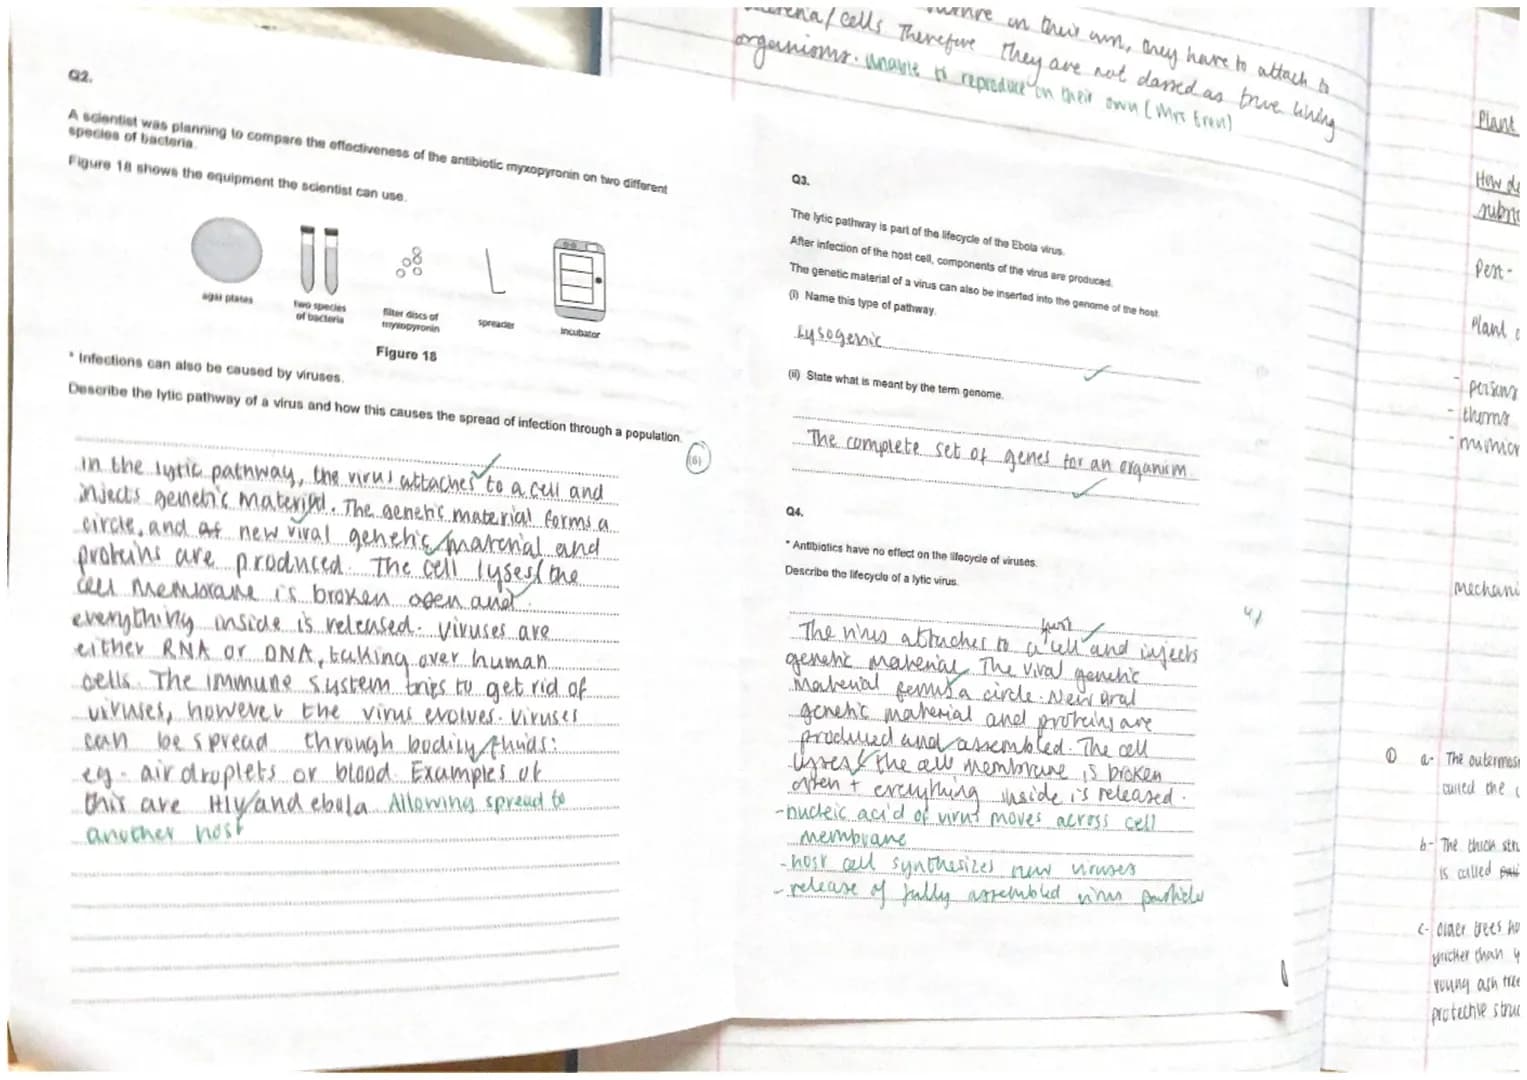 on their own, they have to attach to
cells. Therefore they are not classed as true living
organisms. unable to reproduce on their own (Mrs Eren)
Q2.
A scientist was planning to compare the effectiveness of the antibiotic myxopyronin on two different
species of bacteria.
Figure 18 shows the equipment the scientist can use.
agar plates
two species
of bacteria
filter discs of
myxopyronin
spreader
incubator
Figure 18
* Infections can also be caused by viruses.
Describe the lytic pathway of a virus and how this causes the spread of infection through a population.
(6)
in the lytic pathway, the virus attaches to a cell and
injects genetic material. The genetic material forms a
circle, and new viral genetic material and
proteins are produced. The cell lyses/ the
cell membrane is broken open and
everything inside is released. Viruses are
either RNA or DNA, taking over human
cells. The immune system tries to get rid of
viruses, however the virus evolves. Viruses
can be spread through bodily fluids:
eg - air droplets or blood. Examples of
this are HIV and ebola. Allowing spread to
another host
Q3.
The lytic pathway is part of the lifecycle of the Ebola virus.
After infection of the host cell, components of the virus are produced.
The genetic material of a virus can also be inserted into the genome of the host.
(i) Name this type of pathway.
Lysogenic
(ii) State what is meant by the term genome.
The complete set of genes for an organism
Q4.
* Antibiotics have no effect on the lifecycle of viruses.
Describe the lifecycle of a lytic virus.
The virus attaches to a cell and injects
genetic material. The viral genetic
material forms a circle. New viral
genetic material and proteins are
produced and assembled. The cell
lyses/ the cell membrane is broken
open + everything inside is released.
-nucleic acid of virus moves across cell
membrane
-host cell synthesizes new viruses
-release of fully assembled virus particles
Plant
How do
Pest -
Plant
- poisons
- thorns
- mimicr
mechani
① a- The outermos
called the
b- The thick str
is called
c- Older trees ha
thicker than y
young ash tree
protective struc